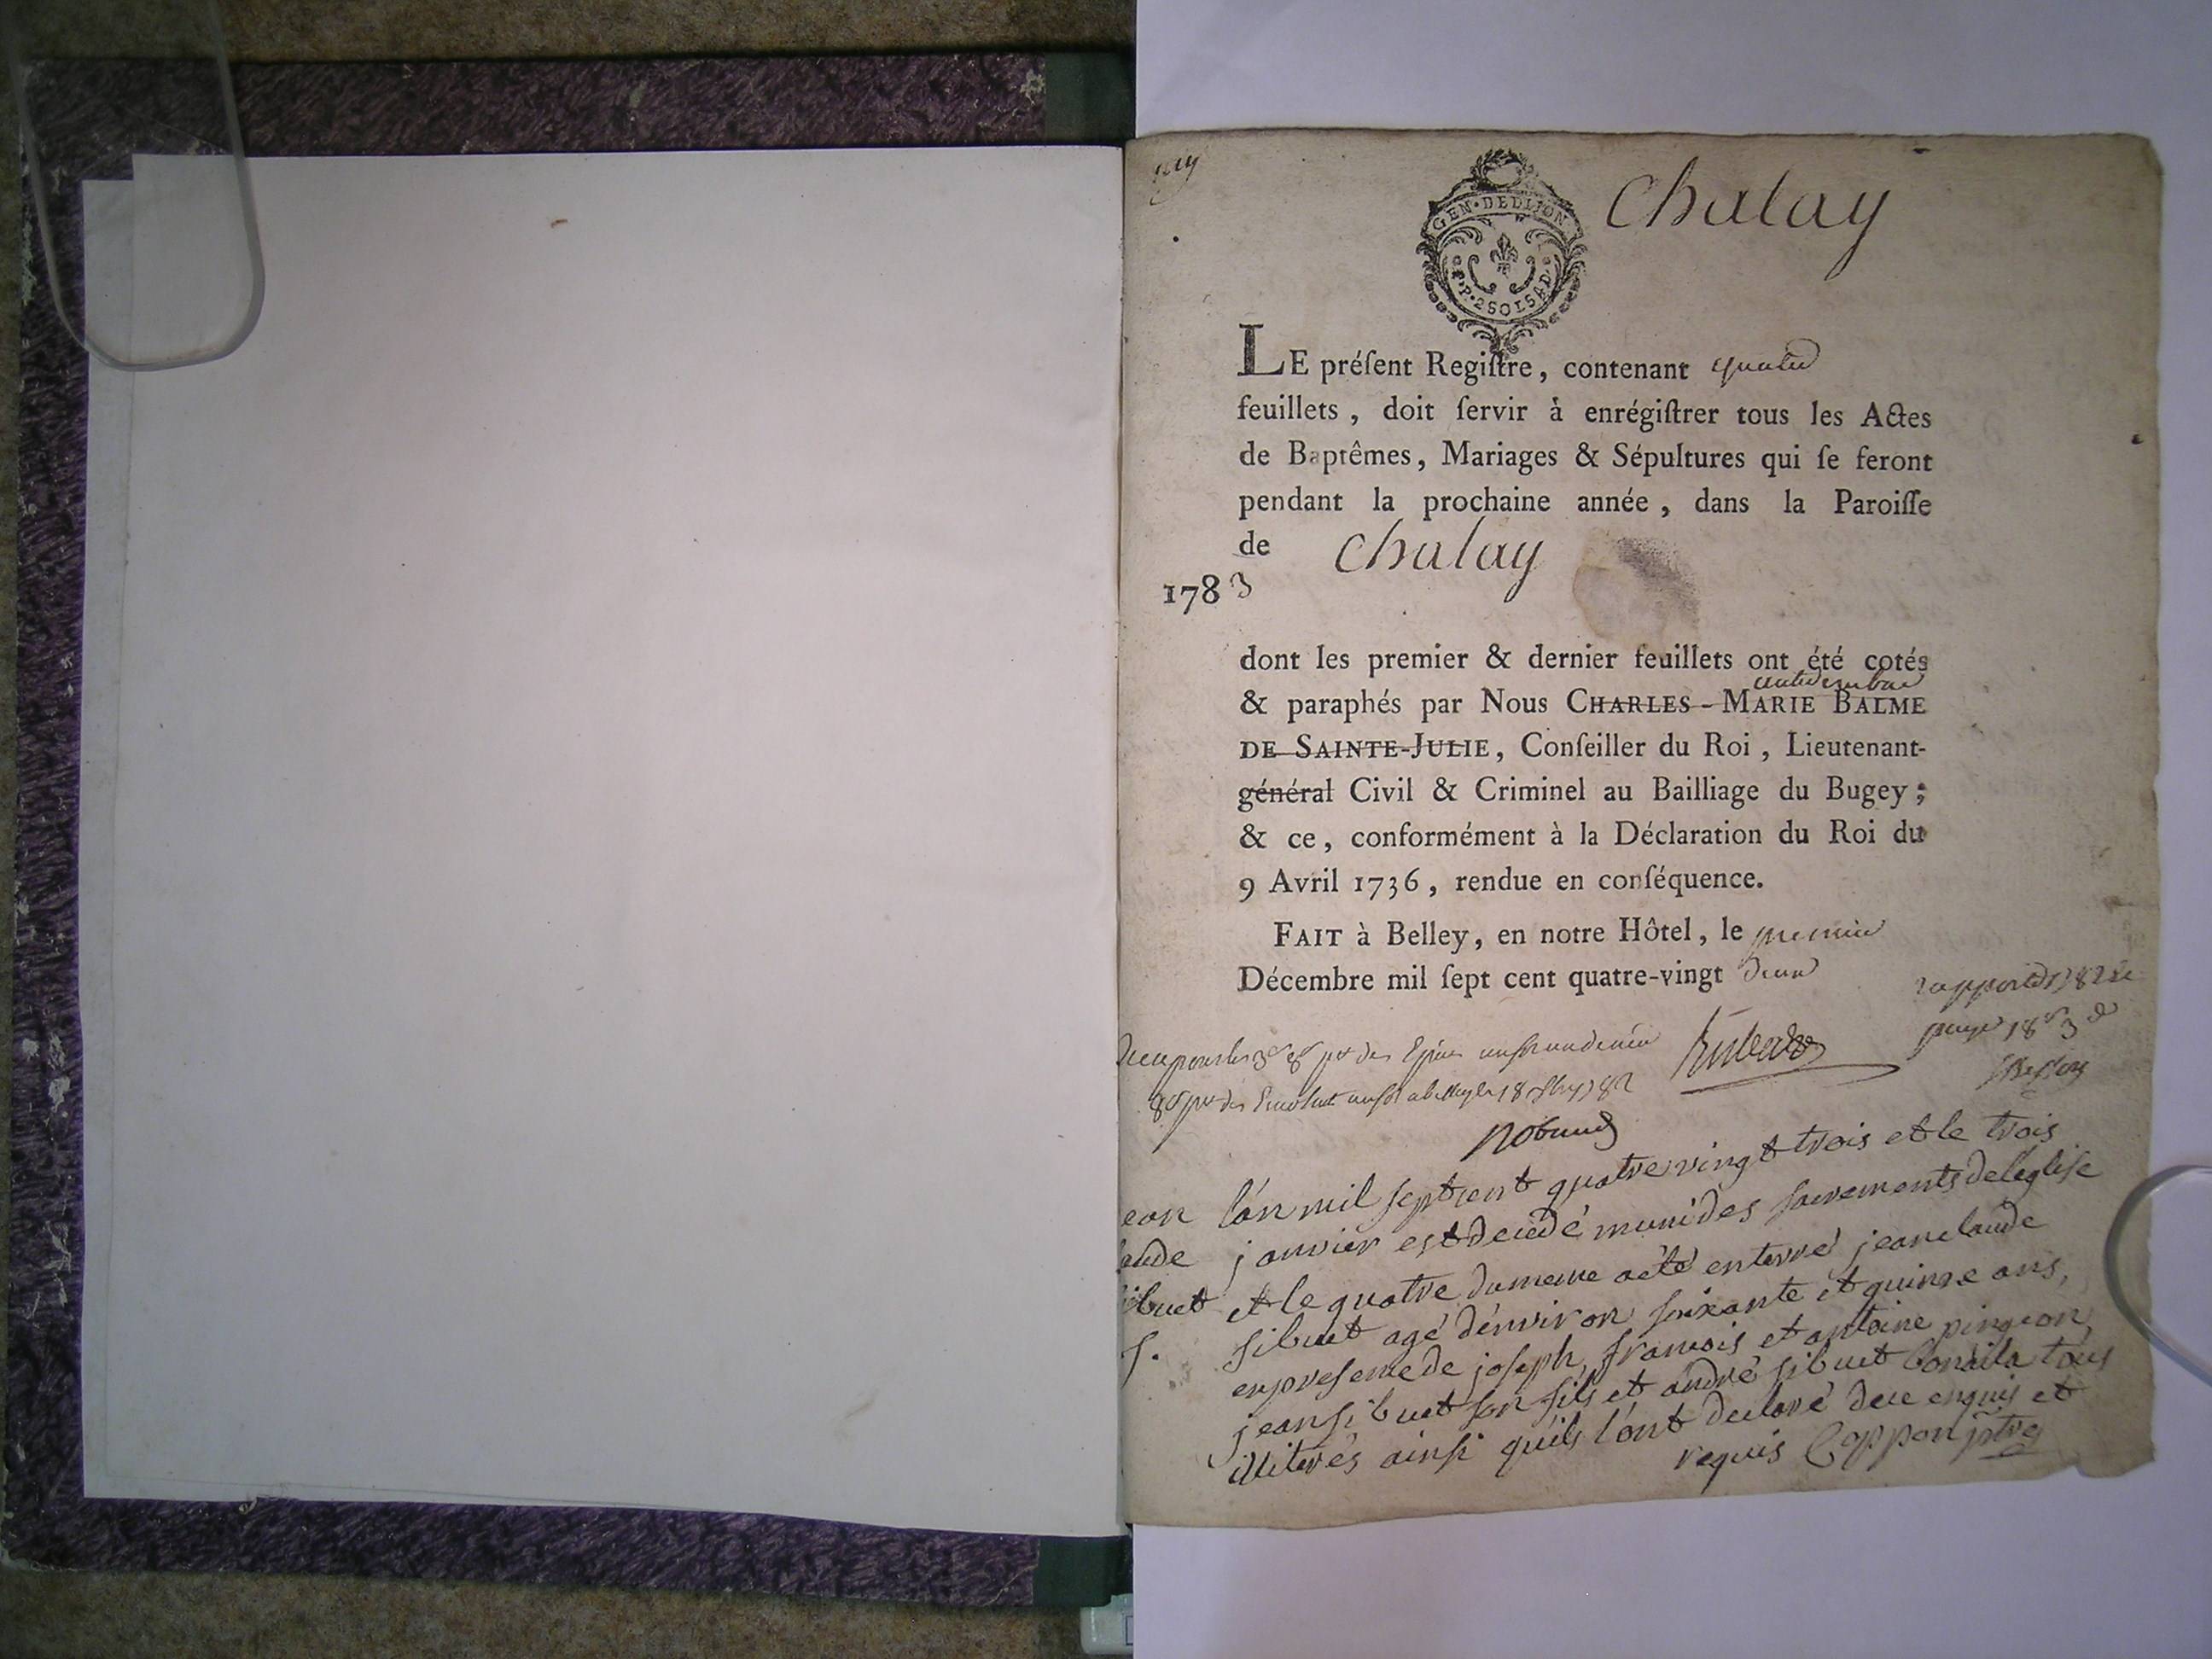 Chalay
GEN · DE DIJON
P.P. 2 SOLS 4 D.
LE préſent Regiſtre, contenant quatre
feuillets, doit ſervir à enrégiſtrer tous les Actes
de Baptêmes, Mariages & Sépultures qui ſe feront
pendant la prochaine année, dans la Paroiſſe
de Chalay
1783
dont les premier & dernier feuillets ont été cotés
& paraphés par Nous CHARLES-MARIE BALME
DE SAINTE-JULIE, Conſeiller du Roi, Lieutenant-
général Civil & Criminel au Bailliage du Bugey;
& ce, conformément à la Déclaration du Roi du
9 Avril 1736, rendue en conſéquence.
FAIT à Belley, en notre Hôtel, le premier
Décembre mil ſept cent quatre-vingt deux
l'an mil sept cent quatre vingt trois et le trois
janvier est decedé muni des sacrements de l'eglise
et le quatre du meme a été enterré jean claude
sibuet agé d'environ soixante et quinze ans,
en presence de joseph, francois et antoine pingeon,
jean sibuet son fils et andré sibuet tous
illiterés ainsi qu'ils l'ont declaré de ce enquis et
requis Coppon ptre